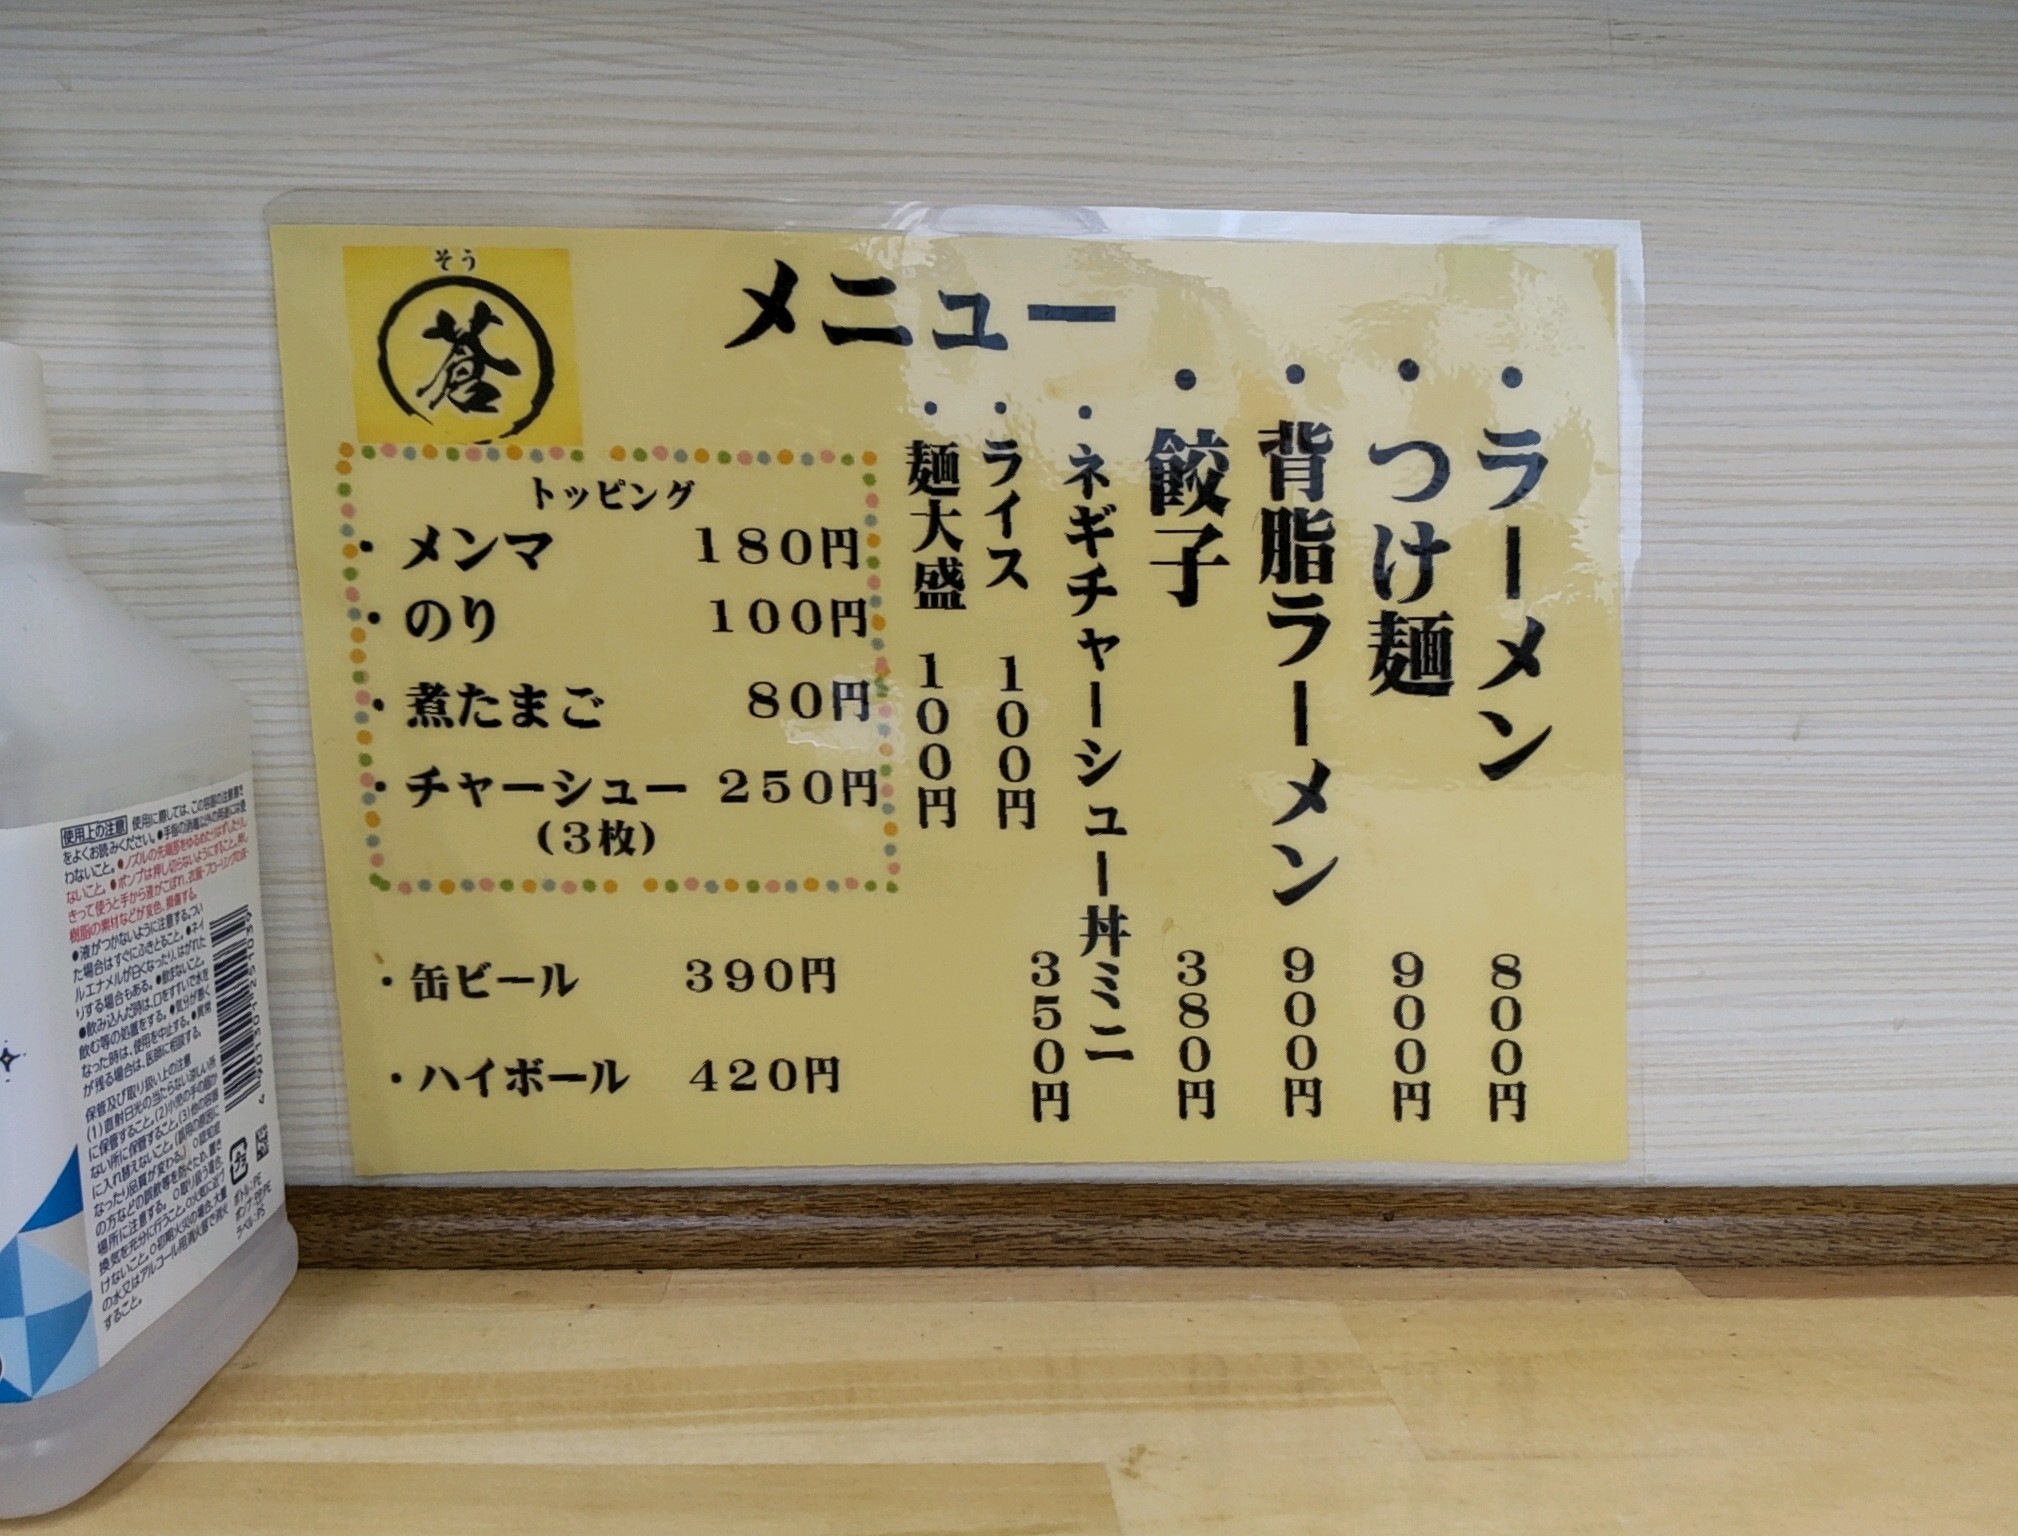 そう
蒼
メニュー
・ラーメン 800円
・つけ麺 900円
・背脂ラーメン 900円
・餃子 380円
・ネギチャーシュー丼ミニ 350円
・ライス 100円
・麺大盛 100円
トッピング
・メンマ 180円
・のり 100円
・煮たまご 80円
・チャーシュー 250円
(3枚)
・缶ビール 390円
・ハイボール 420円
使用上の注意 使用に際しては、この容器の注意書き
をよくお読みください。●手指の消毒以外の用途には使
わないこと。●ノズルの先端部をゆるめたりはずしたりし
ないこと。●ポンプは押し切らないようにすること。
きって使うと手から液がこぼれ、衣服・フローリング
樹脂の素材などが変色、損傷する。
●液がつかないように注意する。つい
た場合はすぐにふきとること。●ネイ
ルエナメルが白くなったり、はがれた
りする場合もある。●飲まないこと。
●飲み込んだ時は、口をすすいで水を
飲む等の処置をする。●気分が悪く
なった時は、使用を中止する。●異常
が残る場合は、医師に相談する。
保管及び取り扱い上の注意
(1)直射日光の当たらない涼しい所
に保管すること。(2)小児の手の届か
ない所に保管すること。(3)他の容器
に入れ替えないこと。(誤用の原因に
なったり品質が変わる。) ○認知症
の方などの誤飲等を防ぐため、置き
場所に注意する。 ○取り扱う場合、
換気を充分に行うこと。○火気に近づ
けないこと。○初期火災の場合、大量
の水又はアルコール用消火器で消火
すること。
ボトル:PE
ポンプ:PP,PE
ラベル:PS